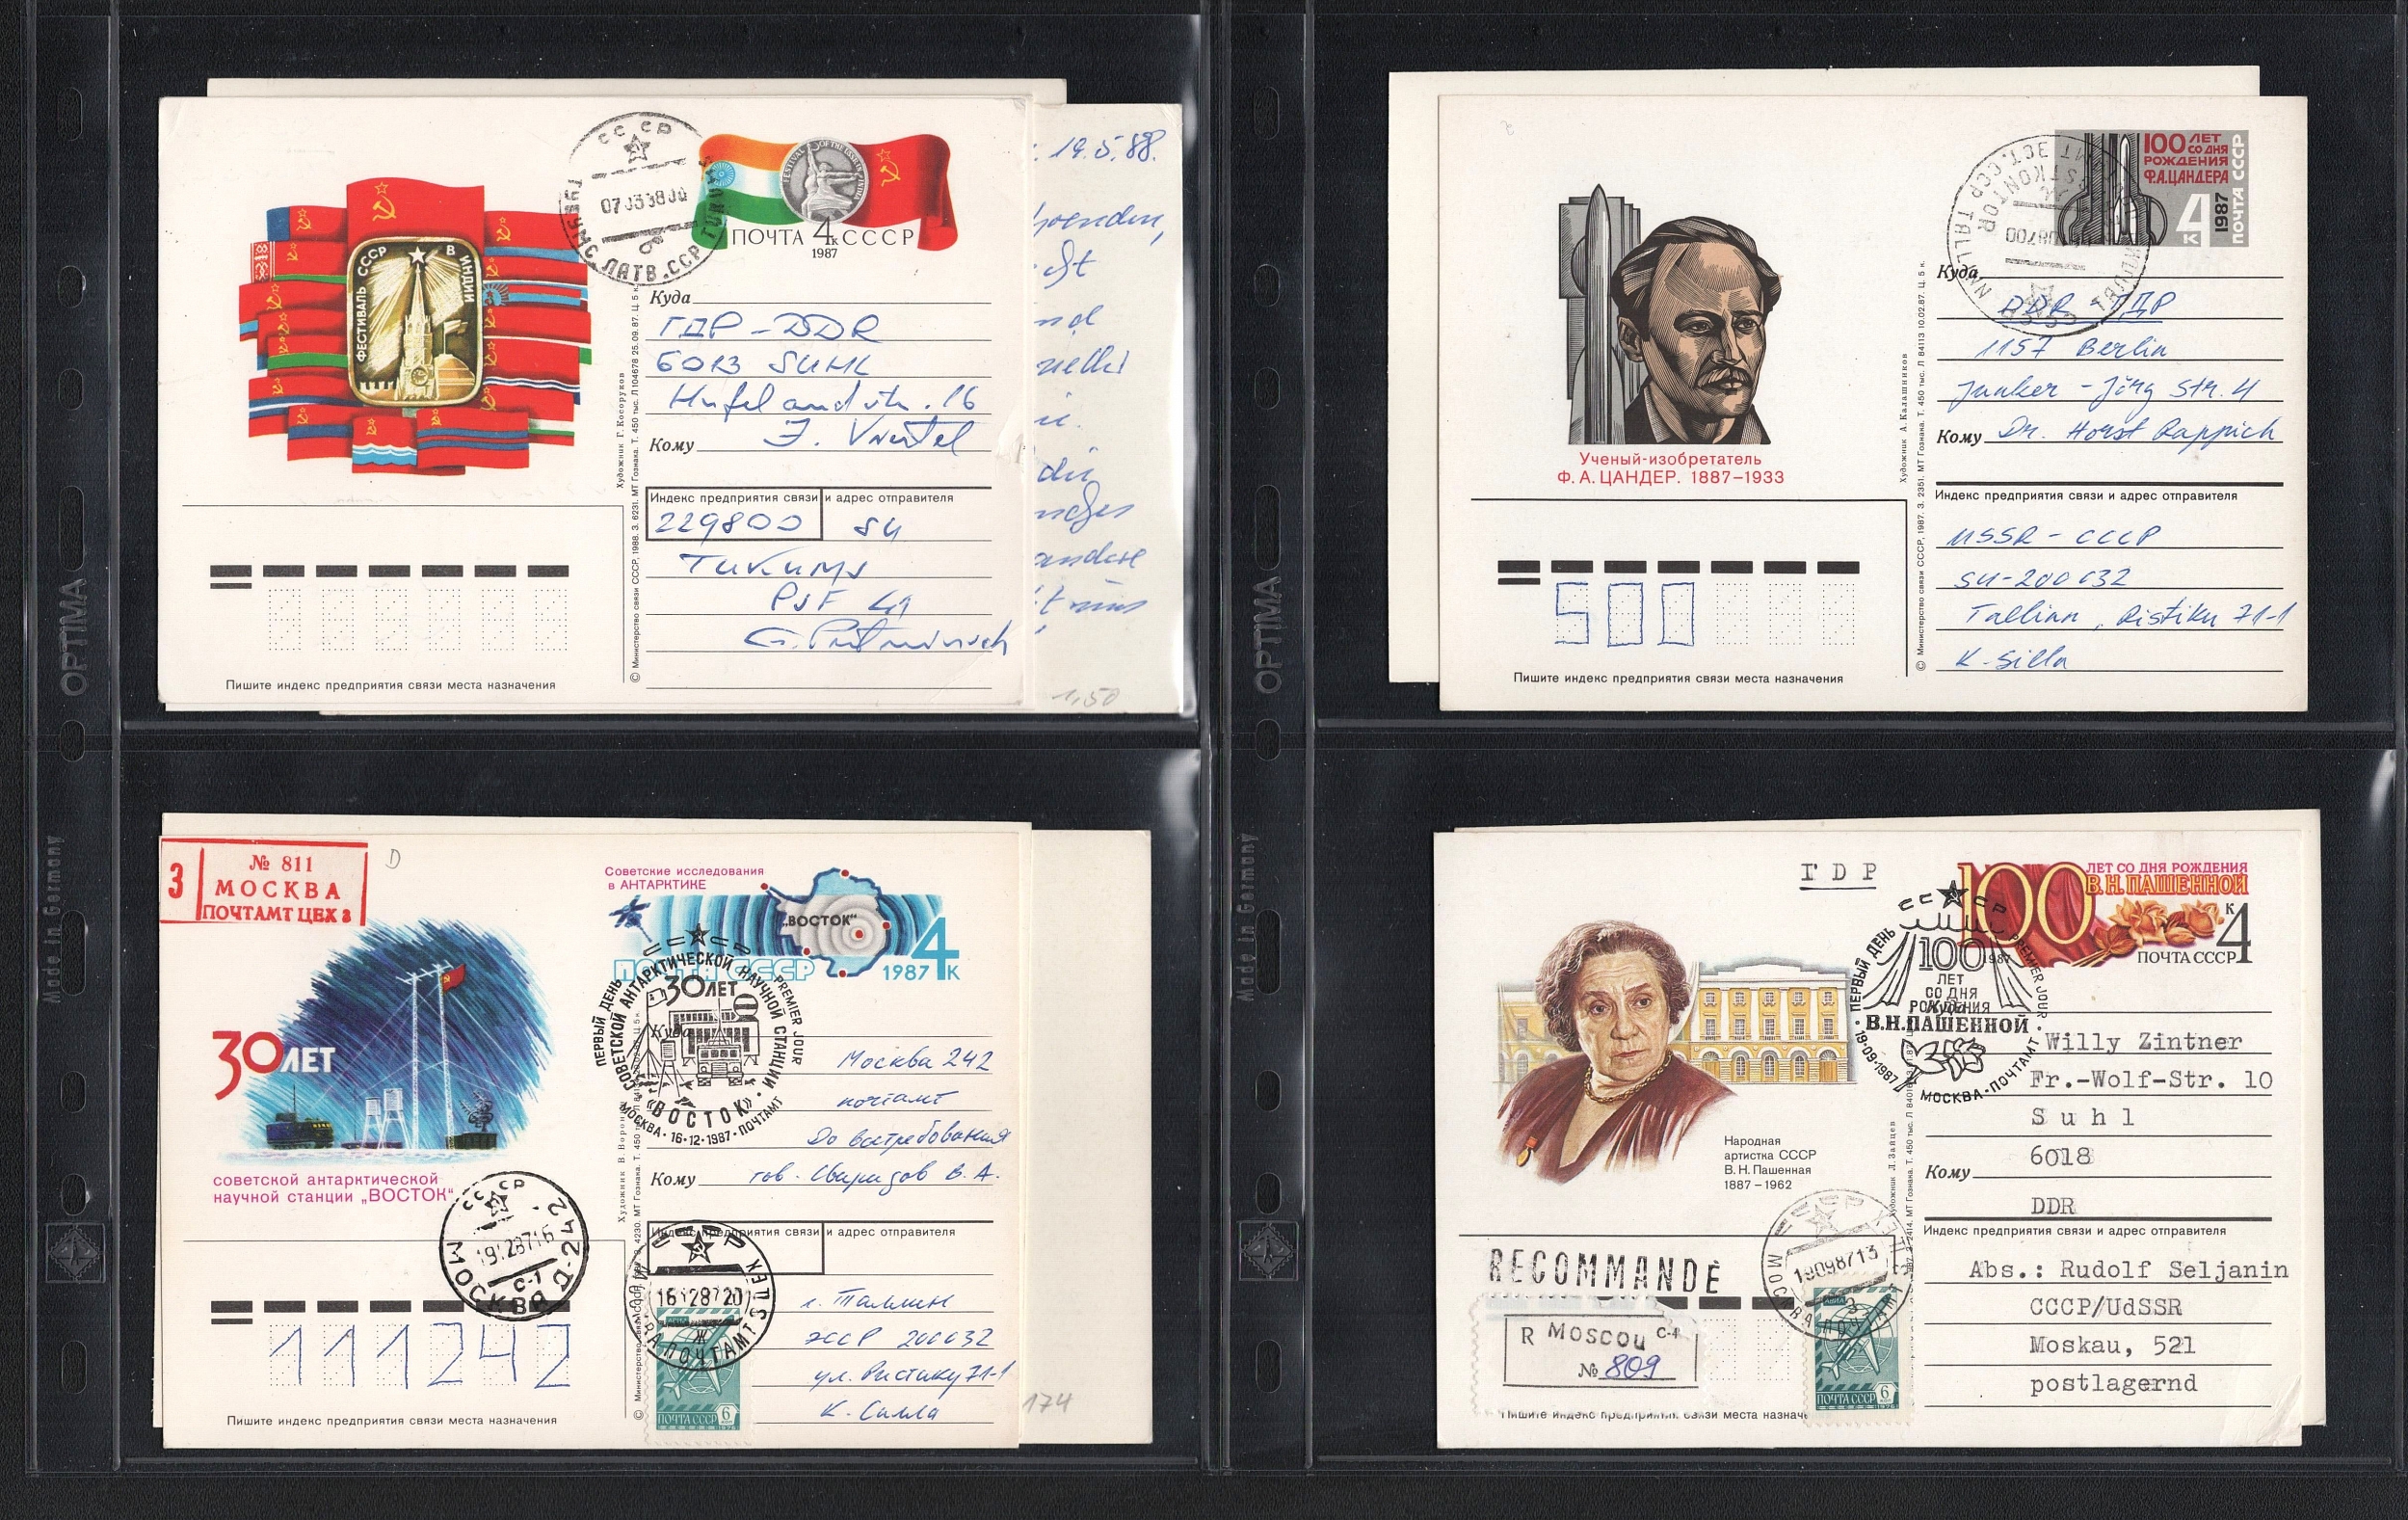 СССР
07 03 88 00
ТУКУМС ЛАТВ.ССР TUKUMS
FESTIVAL OF THE USSR IN INDIA
ПОЧТА 4к СССР
1987
ФЕСТИВАЛЬ СССР В ИНДИИ
Куда
ГДР-DDR
SUHL
Hufelandstr. 16
Кому
Индекс предприятия связи и адрес отправителя
229800 SU
Tukums
41
Художник Г. Косоруков
© Министерство связи СССР, 1988. З. 6231. МТ Гознака. Т. 450 тыс. Л 104678 25.09.87. Ц. 5 к.
Пишите индекс предприятия связи места назначения
19.5.88.
1,50
100 ЛЕТ
СО ДНЯ
РОЖДЕНИЯ
Ф.А.ЦАНДЕРА
4к
1987
ПОЧТА СССР
Ученый-изобретатель
Ф. А. ЦАНДЕР. 1887–1933
Куда
DDR - ГДР
1157 Berlin
Junker-Jörg Str. 4
Кому Dr. Horst Rappich
Индекс предприятия связи и адрес отправителя
USSR - СССР
SU-200032
Tallinn, Ristiku 71-1
K. Silla
Художник А. Калашников
© Министерство связи СССР, 1987. З. 2351. МТ Гознака. Т. 450 тыс. Л 84113 10.02.87. Ц. 5 к.
500
Пишите индекс предприятия связи места назначения
OPTIMA
OPTIMA
Made in Germany
Made in Germany
З
№ 811
МОСКВА
ПОЧТАМТ ЦЕХ 3
D
Советские исследования
в АНТАРКТИКЕ
„ВОСТОК“
ПОЧТА СССР
1987 4к
30 ЛЕТ
советской антарктической
научной станции „ВОСТОК“
СССР
ПЕРВЫЙ ДЕНЬ PREMIER JOUR
СОВЕТСКОЙ АНТАРКТИЧЕСКОЙ НАУЧНОЙ СТАНЦИИ
30 ЛЕТ
«ВОСТОК»
МОСКВА • 16•12•1987 • ПОЧТАМТ
Куда
Москва 242
почтамт
До востребования
Кому тов. Свиридов В. А.
Индекс предприятия связи и адрес отправителя
г. Таллин
ЭССР 200032
ул. Ристику 71-1
К. Силла
СССР
МОСКВА Д-242
С-1
СССР
МОСКВА ПОЧТАМТ
Ж
ПОЧТА СССР 6
111242
Пишите индекс предприятия связи места назначения
174
ГDР
100 ЛЕТ СО ДНЯ РОЖДЕНИЯ
В.Н.ПАШЕННОЙ
4к
1987
ПОЧТА СССР
СССР
ПЕРВЫЙ ДЕНЬ PREMIER JOUR
100
ЛЕТ
СО ДНЯ
РОЖДЕНИЯ
В.Н.ПАШЕННОЙ
19•09•1987
МОСКВА•ПОЧТАМТ
Куда
Willy Zintner
Fr.-Wolf-Str. 10
Suhl
6018
Кому
DDR
Народная
артистка СССР
В. Н. Пашенная
1887–1962
Индекс предприятия связи и адрес отправителя
Abs.: Rudolf Seljanin
CCCP/UdSSR
Moskau, 521
postlagernd
RECOMMANDÉ
R MOSCOU С-4
№ 809
19098713
МОСКВА ПОЧТАМТ
АВИА
ПОЧТА СССР 6
Художник Л. Зайцев
Пишите индекс предприятия связи места назначе